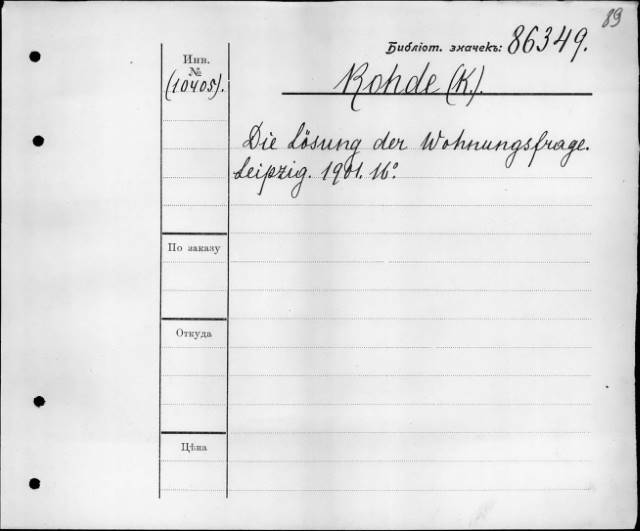 89
Библіот. значекъ: 86349.
Инв.
№
(10405).
Rohde (K.).
Die Lösung der Wohnungsfrage.
Leipzig. 1901. 16°.
По заказу
Откуда
Цѣна